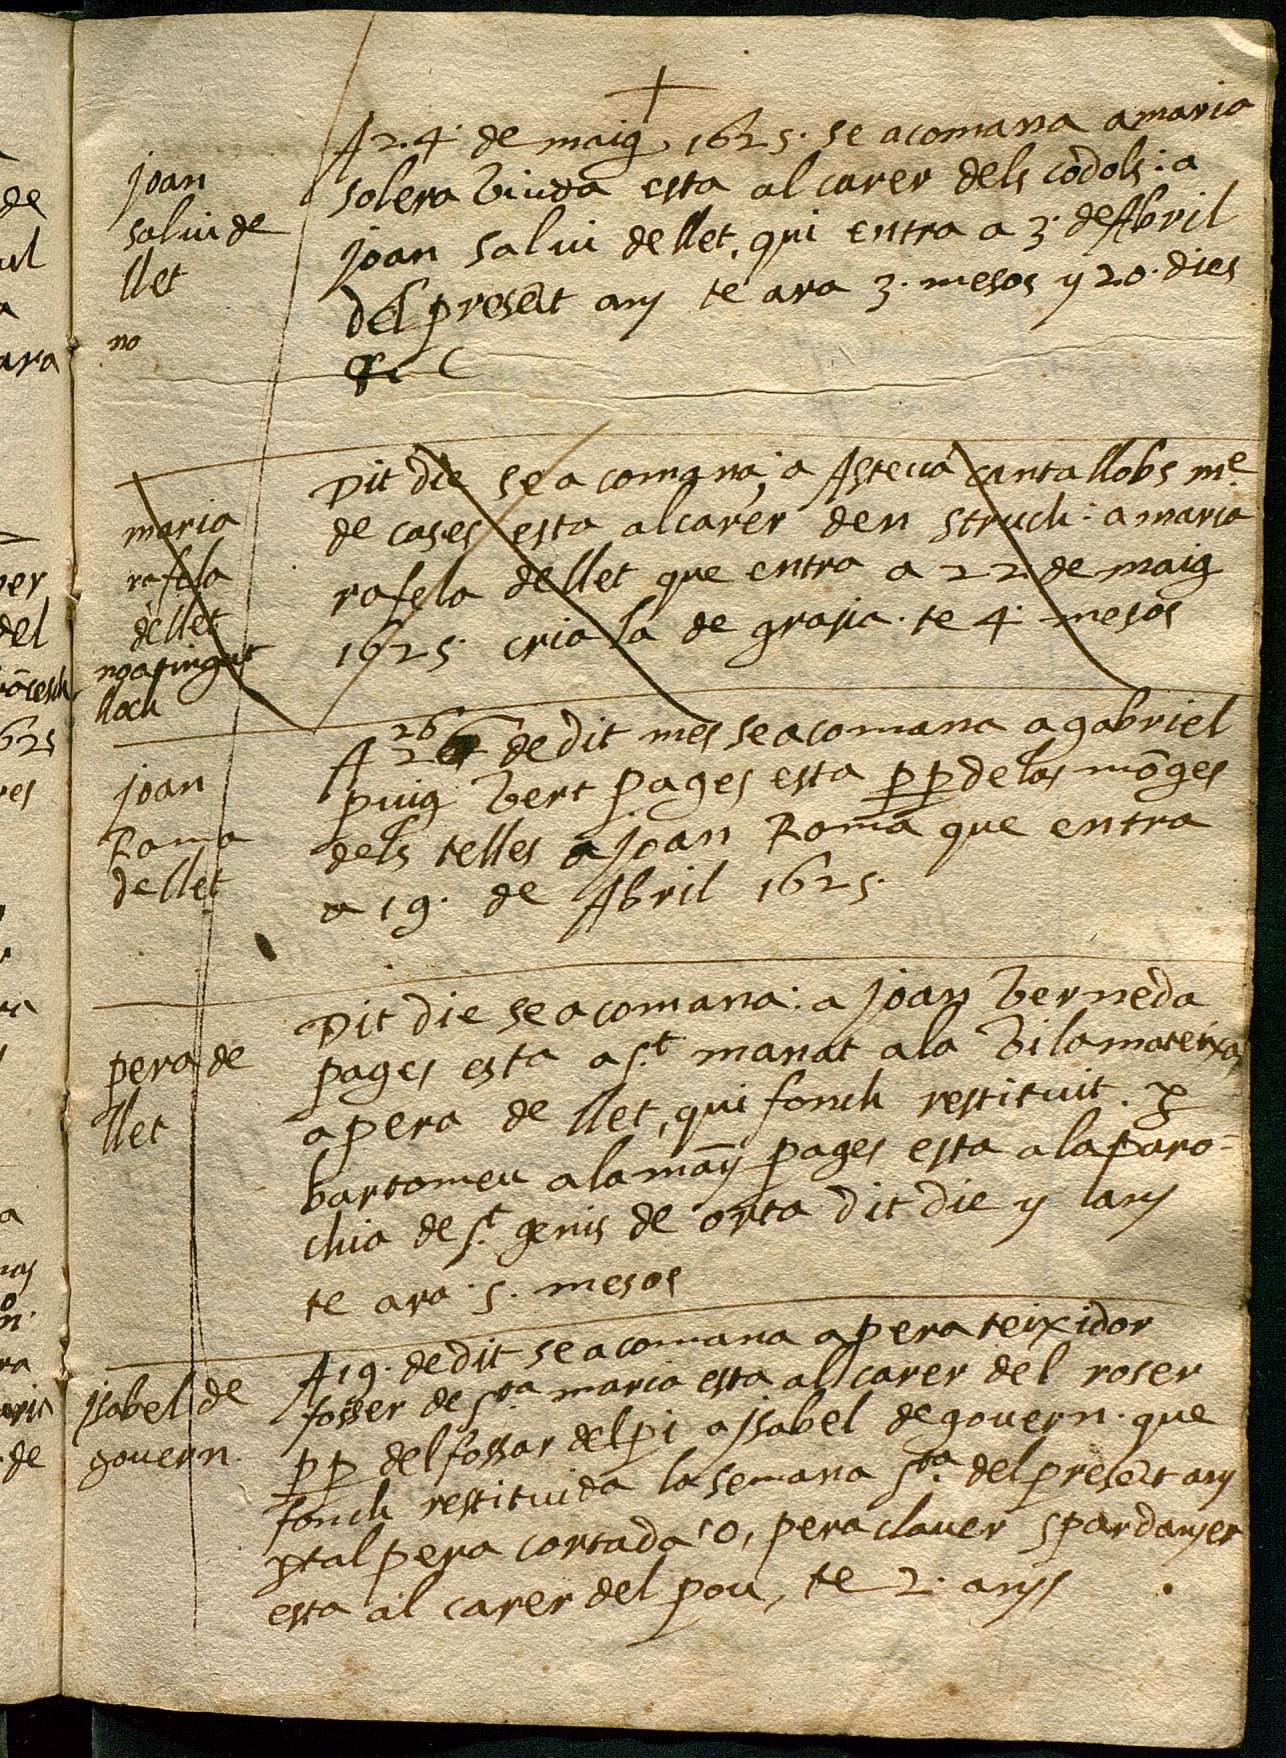 joan
salvi de
llet
no
A 24 de maig 1625. se acomana a maria
solera viuda esta al carer dels còdols: a
joan salvi de llet, qui entra a 3 de Abril
del presēt any te ara 3. mesos y 20. dies
maria
rafela
de llet
no a tingut
lloch
Dit die se a comana; a Asteva cantallobs mᵉ.
de cases esta al carer den struch: a maria
rafela de llet que entra a 22 de maig
1625. cria la de grasia. te 4. mesos
joan
Roma
de llet
26
A 26 de dit mes se acomana a gabriel
puig vert pages esta p p de las mōges
dels telles a joan Roma que entra
a 19. de Abril 1625.
pera de
llet
Dit die se acomana: a joan verneda
pages esta a sᵗ. manat a la vila mateixa,
a pera de llet, qui fonch restituit. p
bartomeu alamāy pages esta a la paro=
chia de sᵗ. genis de orta dit die y lany
te ara 5. mesos
jsabel de
govern.
A 19. de dit se acomana a pera teixidor
fosser de sᵗᵃ. maria esta al carer del roser
p p del fossar del pi a jsabel de govern. que
fonch restituida la semana sᵗᵃ. del presēt any
p tal pera cortada o, pera claver spardanyer
esta al carer del pou, te 2. anys